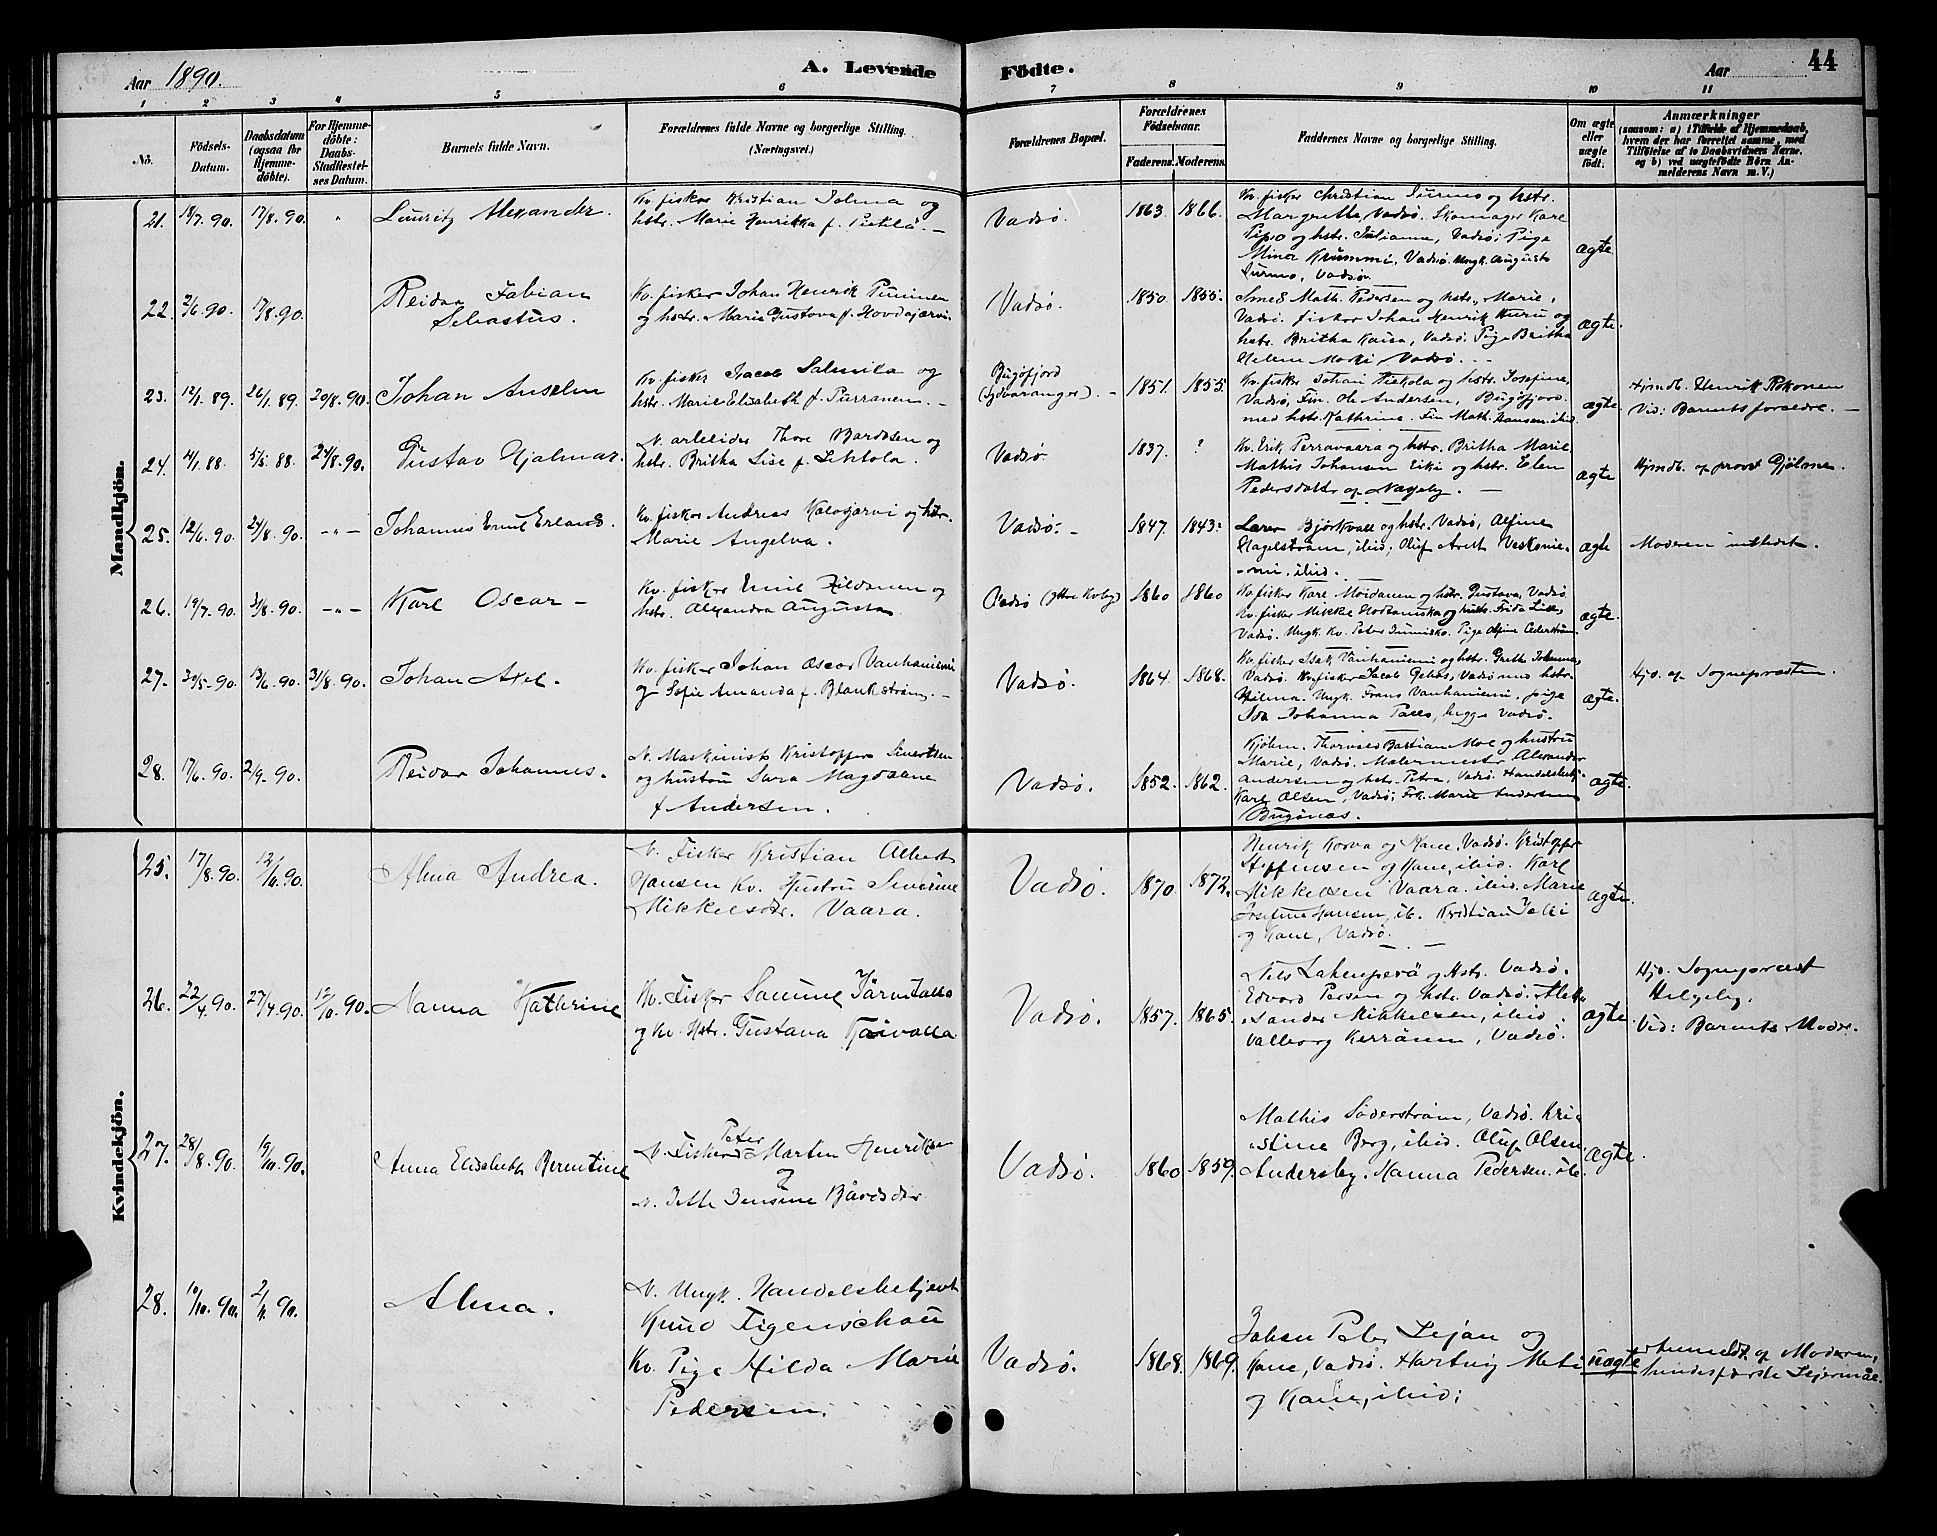 Aar 1890.
A. Levende Födte.
Aar
44
1 2 3 4 5 6 7 8 9 10 11
No.
Födsels-Datum.
Daabsdatum (ogsaa for Hjemme-döbte).
For Hjemme-döbte: Daabs-Stadfestel-ses Datum.
Barnets fulde Navn.
Forældrenes fulde Navne og borgerlige Stilling. (Næringsvei.)
Forældrenes Bopæl.
Forældrenes Födselsaar.
Faderens. Moderens.
Faddernes Navne og borgerlige Stilling.
Om ægte eller uægte födt.
Anmærkninger
(saasom: a) i Tilfælde af Hjemmedaab, hvem der har forrettet samme, med Tilföielse af to Daabsvidners Navne, og b) ved uægtefödte Börn Anmelderens Navn m. V.)
Mandkjön.
21. 17/8.90. Lauritz Alexander.
Kv. fisker Kristian Jolma og
hstr. Marie Henrikka f.
Vadsø. 1863. 1866.
Kv. fisker Christian Surmo og hstr.
Margretha, Vadsø. Skomager Karl
og hstr. Julianna, Vadsø; Pige
Mina Krummi, Vadsø. Ungk. August
Surmo, Vadsø.
ægte
22. 2/6.90. 17/8.90. Reidar Fabian
Sebastus.
Kv. fisker Johan Henrik
og hstr. Marie Gustava f.
Vadsø. 1850. 1855.
Smed Math. Pedersen og hstr. Marie,
Vadsø. fisker Johan Henrik Kuru og
hstr. Britha Kaisa, Vadsø. Pige Britha
Helene Vadsø.
ægte.
23. 12/1.89. 26/1.89. 20/8.90. Johan Anselm
Kv. fisker Jacob Salmila og
hstr. Marie Elisabeth f. Purranen.
Bugøfjord
(Sydvaranger). 1851. 1855.
Kv. fisker Johan og hstr. Josefine,
Vadsø, Fin. Ole Andersen, Bugøfjord
med hstr. Kathrine. Fin Math. Hansen, ibid
ægte.
Hjmdb. Henrik
Vid: Barnets forældre.
24. 4/1.88. 5/5.88. 24/8.90. Gustav Hjalmar.
N. arbeider Thore Bardsen og
hstr. Britha Lise f. Lehtola.
Vadsø 1837. ?
Kv. Erik Perravaara og hstr. Britha Marie
Mathis Johansen Eiki og hstr. Elen
Pedersdatter af Næseby.
ægte
Hjmdb. af provst Gjølme.
25. 12/6.90. 24/8.90. -"- Johannes Emil Erland.
Kv. fisker Andreas Kalvojarvi og hstr.
Marie Angelva.
Vadsø. 1847. 1843.
Lærer Bjørkvall og hstr. Vadsø, Alfine
Hagelstrøm, ibid; Oluf
ibid.
ægte
Moderen indledet.
26. 19/7.90. 31/8.90. -"- Karl Oscar
Kv. fisker Emil og
hstr. Alexandra Augusta
Vadsø 1860 1860
Kv. fisker Karl og hstr. Gustava, Vadsø
Kv. fisker Mikkel og hstr. Frida Lise,
Vadsø. Ungk. Kv. Peter Pige Alfine Cederstrøm.
ægte.
27. 30/5.90. 13/6.90. 31/8.90. Johan Axel.
Kv. fisker Johan Oscar Vanhaniemi
og Sofie Amanda f. Blankstrøm.
Vadsø. 1864 1868.
Kv. fisker Isak Vanhaniemi og hstr. Grethe Johanna,
Vadsø. Kv. fisker Jacob Vadsø med hstr.
Hilma. Ungk. Frans Vanhaniemi, pige
Ida Johanna begge Vadsø.
ægte.
Hjd. af Sognepræsten.
28. 17/6.90. 2/9.90. Reidar Johannes.
N. Maskinist Kristoffer Sivertsen
og hustru Sara Magdalene
f. Andersen.
Vadsø. 1852. 1862.
Kjøbm. Thorvald Bastian Moe og hustru
Marie, Vadsø. Malermester Alexander
Andersen og hstr. Petra, Vadsø. Handelsbetj.
Karl Olsen, Vadsø; Frk. Marie Andersen
Bugønæs.
ægte.
Kvindekjön.
25. 17/8.90. Alma Andrea.
N. Fisker Kristian Albert
Hansen Kv. Hustru Severine
Mikkelsdtr. Vaara.
Vadsø. 1870. 1872.
Henrik Korva og Kone, Vadsø. Kristoffer
Steffensen og Kone, ibid. Karl
Mikkelsen Vaara. ibid. Marie
Josefine Hansen, ib. Kristian
og Kone, Vadsø.
ægte.
26. 22/4.90. 27/4.90. 12/10.90. Nanna Kathrine
Kv. Fisker Samuel
og Kv. Hstr. Gustava
Vadsø. 1857. 1865.
Nils og Hstr. Vadsø.
Edvard Persen og hstr. Vadsø. Alek-
sander Mikkelsen, ibid.
Valborg Kerränen, Vadsø.
ægte
Hjd. Sognepræst
Helgeby.
Vid: Barnets Moder.
27. 28/8.90. Anna Elisabeth Berentine
N. Fisker Peter Martin Henriksen
og
N. Jette Jensine Bårdsdtr
Vadsø. 1860 1859.
Mathis Söderström, Vadsø. Kri-
stine Berg, ibid. Oluf Olsen
Andersby. Hanna Pedersen. ib.
ægte.
28. 10/10.90. 2/11.90. Alma.
N. Ungk. Handelsbetjent
Knud Figenschou
Kv. Pige Hilda Marie
Pedersen.
Vadsø. 1868. 1869.
Johan Peter Lejan og
Kone, Vadsø. Hartvig
og Kone, ibid;
uægte
Anmeldt af Moderen,
hendes første Lejermål.